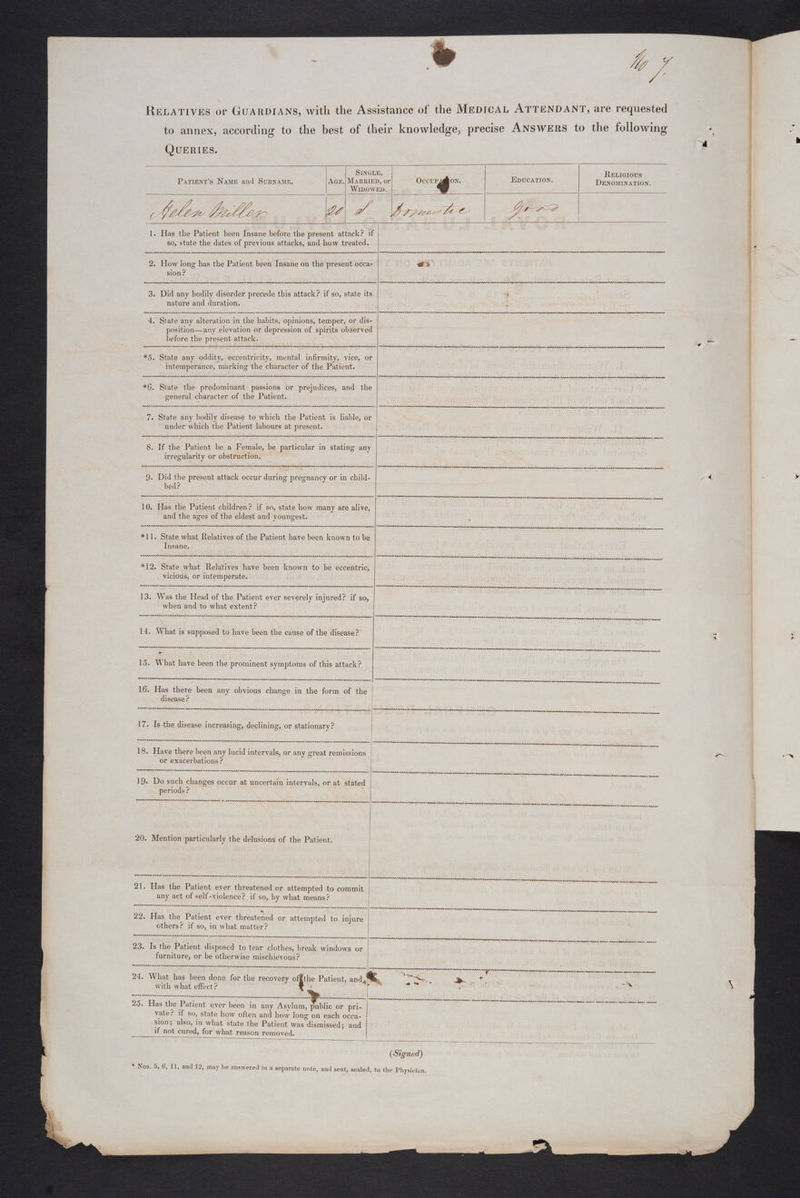 No 7.
RELATIVES or GUARDIANS, with the Assistance of the MEDICAL ATTENDANT, are requested
to annex, according to the best of their knowledge, precise ANSWERS to the following
QUERIES.
PATIENT'S NAME and SURNAME. AGE. SINGLE, MARRIED, or WIDOWED. OCCUPATION. EDUCATION. RELIGIOUS DENOMINATION.
Helen Miller 20 S Domestic good
1. Has the Patient been Insane before the present attack? if
so, state the dates of previous attacks, and how treated.
2. How long has the Patient been Insane on the present occa-
sion?
3. Did any bodily disorder precede this attack? if so, state its
nature and duration.
4. State any alteration in the habits, opinions, temper, or dis-
position—any elevation or depression of spirits observed
before the present attack.
*5. State any oddity, eccentricity, mental infirmity, vice, or
intemperance, marking the character of the Patient.
*6. State the predominant passions or prejudices, and the
general character of the Patient.
7. State any bodily disease to which the Patient is liable, or
under which the Patient labours at present.
8. If the Patient be a Female, be particular in stating any
irregularity or obstruction.
9. Did the present attack occur during pregnancy or in child-
bed?
10. Has the Patient children? if so, state how many are alive,
and the ages of the eldest and youngest.
*11. State what Relatives of the Patient have been known to be
Insane.
*12. State what Relatives have been known to be eccentric,
vicious, or intemperate.
13. Was the Head of the Patient ever severely injured? if so,
when and to what extent?
14. What is supposed to have been the cause of the disease?
15. What have been the prominent symptoms of this attack?
16. Has there been any obvious change in the form of the
disease?
17. Is the disease increasing, declining, or stationary?
18. Have there been any lucid intervals, or any great remissions
or exacerbations?
19. Do such changes occur at uncertain intervals, or at stated
periods?
20. Mention particularly the delusions of the Patient.
21. Has the Patient ever threatened or attempted to commit
any act of self-violence? if so, by what means?
22. Has the Patient ever threatened or attempted to injure
others? if so, in what matter?
23. Is the Patient disposed to tear clothes, break windows or
furniture, or be otherwise mischievous?
24. What has been done for the recovery of the Patient, and
with what effect?
25. Has the Patient ever been in any Asylum, public or pri-
vate? if so, state how often and how long on each occa-
sion; also, in what state the Patient was dismissed; and
if not cured, for what reason removed.
(Signed)
* Nos. 5, 6, 11, and 12, may be answered in a separate note, and sent, sealed, to the Physician.